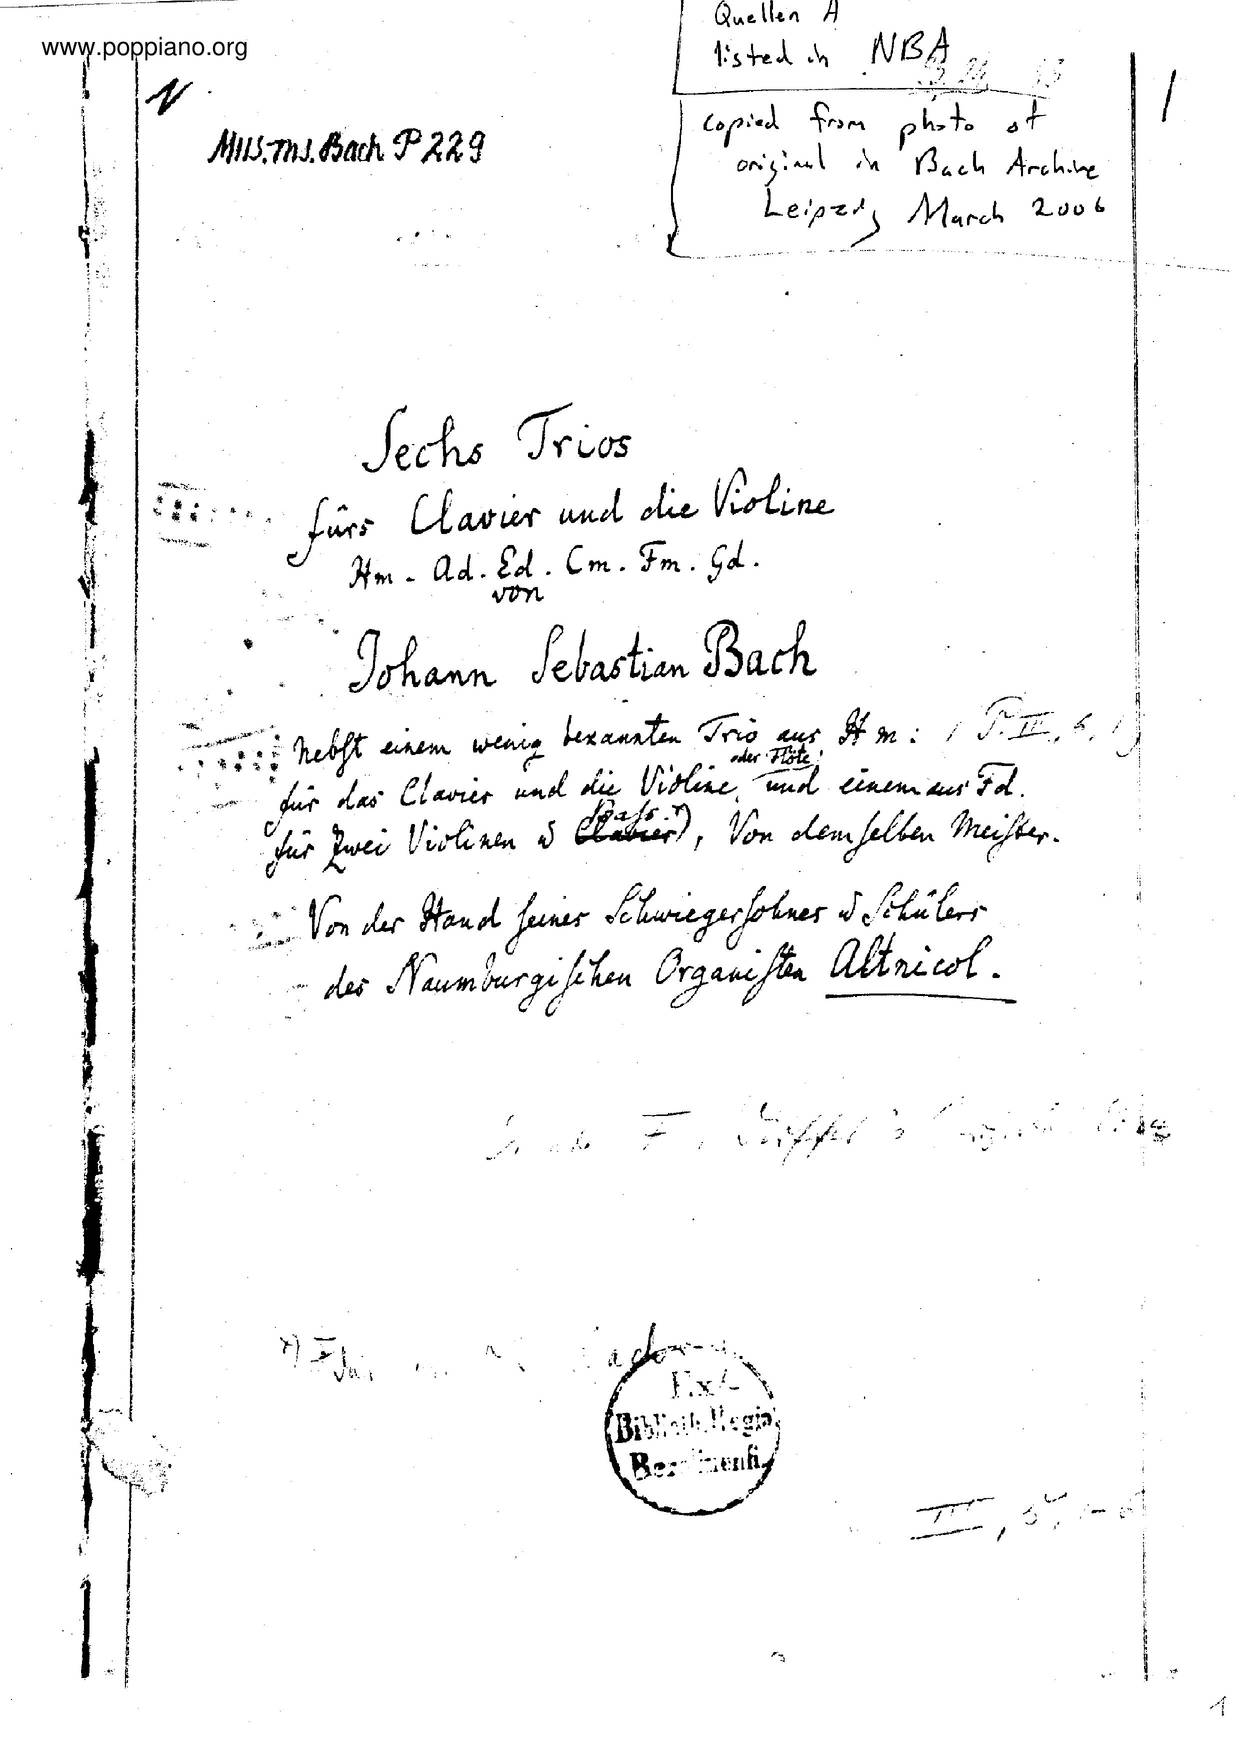 www.poppiano.org
Quellen A
listed in NBA
copied from photo of
original in Bach Archive
Leipzig March 2006
Mus. ms. Bach P 229
Sechs Trios
fürs Clavier und die Violine
Hm - Ad. Ed. Cm. Fm. Gd.
von
Johann Sebastian Bach
nebst einem wenig bekannten Trio aus Hm:
oder Flöte
für das Clavier und die Violine, und einem aus Fd.
Bass
für Zwei Violinen u Clavier), Von demselben Meister.
Von der Hand seines Schwiegersohnes u Schülers
des Naumburgischen Organisten Altnicol.
Ex
Biblioth. Regia
Berolinensi.
III, 5, 1-6
1